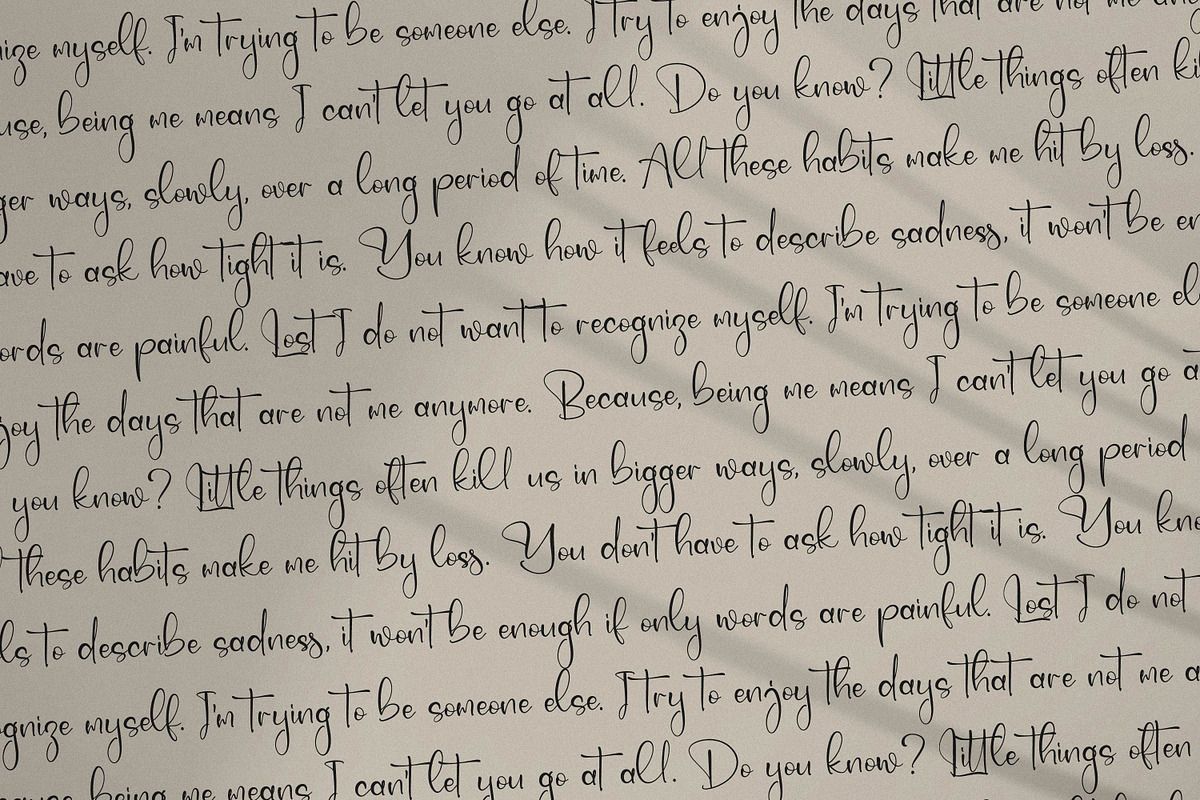 nize myself. I'm trying to be someone else. I try to enjoy the days that are not me any
use, being me means I can't let you go at all. Do you know? Little things often ki
ger ways, slowly, over a long period of time. All these habits make me hit by loss.
ave to ask how tight it is. You know how it feels to describe sadness, it won't be en
ords are painful. Lost I do not want to recognize myself. I'm trying to be someone el
joy the days that are not me anymore. Because, being me means I can't let you go a
you know? Little things often kill us in bigger ways, slowly, over a long period
these habits make me hit by loss. You don't have to ask how tight it is. You kno
ls to describe sadness, it won't be enough if only words are painful. Lost I do not
gnize myself. I'm trying to be someone else. I try to enjoy the days that are not me a
being me means I can't let you go at all. Do you know? Little things often